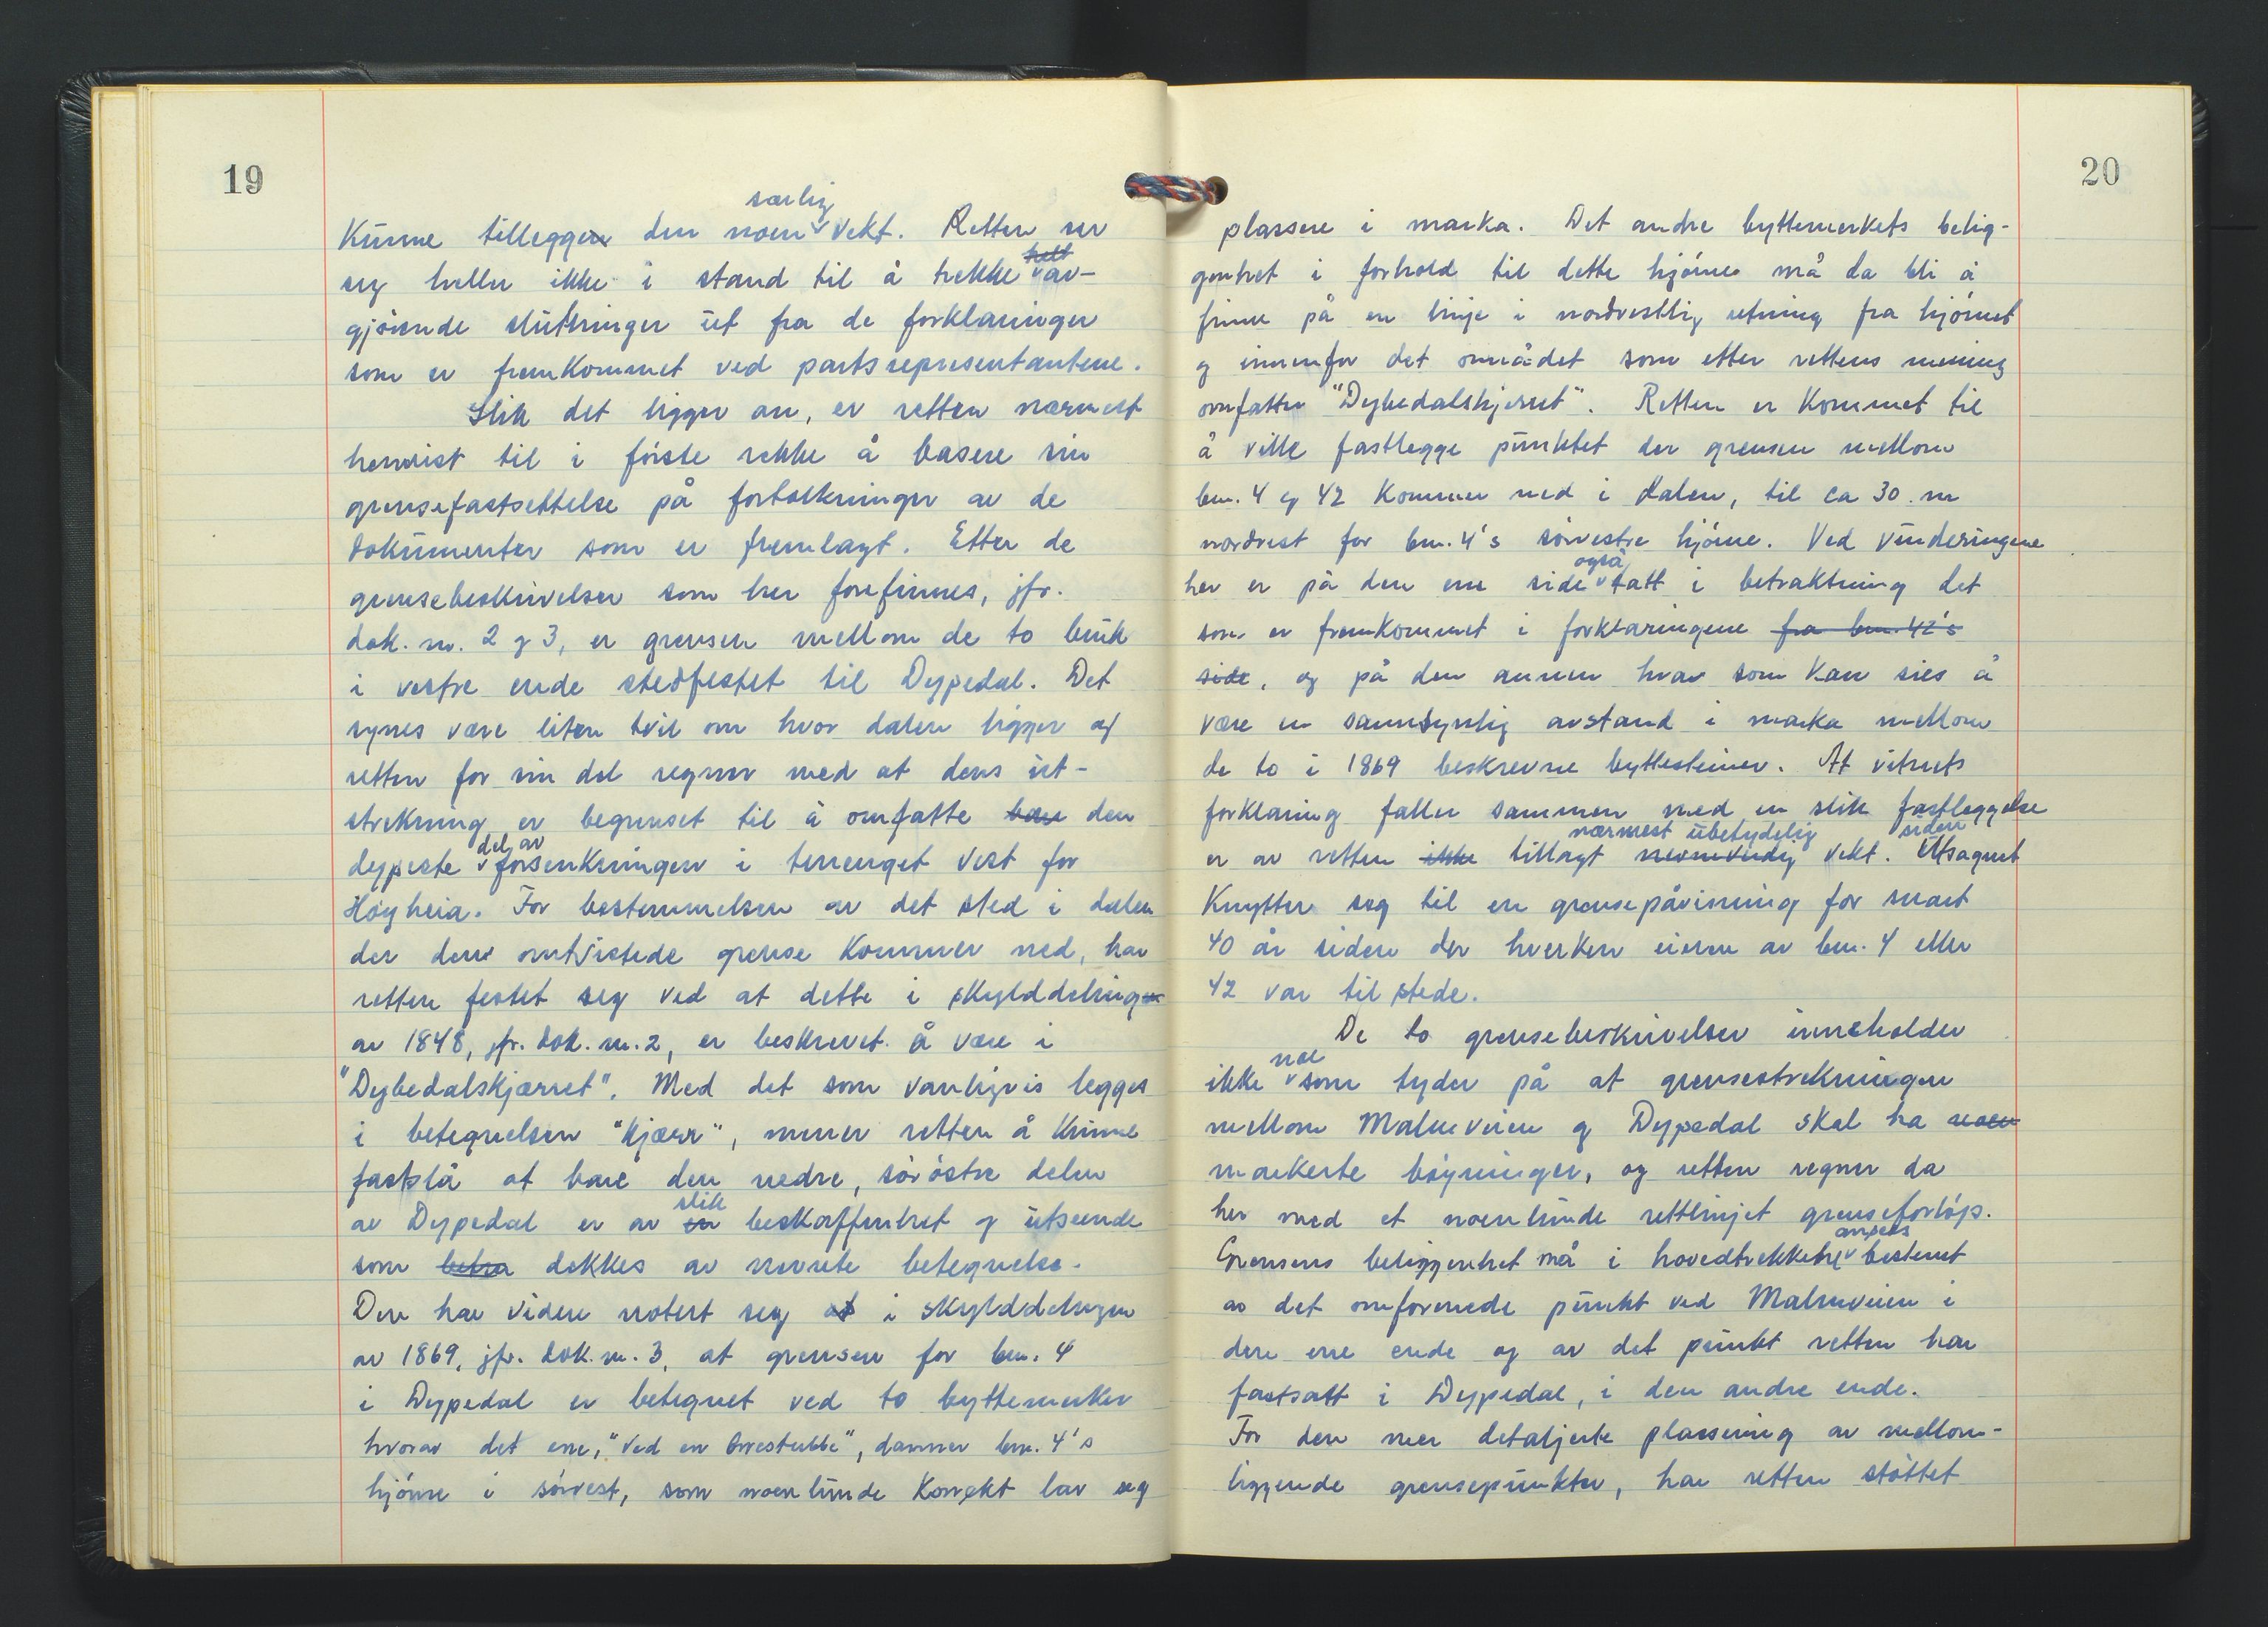 19
kunne tillegge den noen særlig vekt. Retten ser
seg heller ikke i stand til å trekke helt av-
gjørende slutninger ut fra de forklaringer
som er fremkommet ved partsrepresentantene.
Slik det ligger an, er retten nærmest
henvist til i første rekke å basere sin
grensefastsettelse på fortolkninger av de
dokumenter som er fremlagt. Etter de
grensebeskrivelser som her forefinnes, jfr.
dok. nr. 2 og 3, er grensen mellom de to bruk
i vestre ende stedfestet til Dypedal. Det
synes være liten tvil om hvor dalen ligger og
retten for sin del regner med at dens ut-
strekning er begrenset til å omfatte bare den
dypeste del av forsenkningen i terrenget vest for
Høgheia. For bestemmelsen av det sted i dalen
der den omtvistede grense kommer ned, har
retten festet seg ved at dette i skylddeling
av 1848, jfr. dok. nr. 2, er beskrevet å være i
"Dybedalskjærret". Med det som vanligvis legges
i betegnelsen "kjærr", mener retten å kunne
fastslå at bare den nedre, sørøstre delen
av Dypedal er av en slik beskaffenhet og utseende
som betra dekkes av nevnte betegnelse.
Den har videre notert seg at i skylddelingen
av 1869, jfr. dok. nr. 3, at grensen for bnr. 4
i Dypedal er betegnet ved to byttemerker
hvorav det ene, "ved en Orrestubbe", danner bnr. 4's
hjørne i sørvest, som noenlunde korrekt lar seg
20
plassere i marka. Det andre byttemerkets belig-
genhet i forhold til dette hjørne må da bli å
finne på en linje i nordvestlig retning fra hjørnet
og innenfor det området som etter rettens mening
omfatter "Dybedalskjerret". Retten er kommet til
å ville fastlegge punktet der grensen mellom
bnr. 4 og 42 kommer ned i dalen, til ca 30 m
nordvest for bnr. 4's sørvestre hjørne. Ved vurderingene
her er på den ene side også tatt i betraktning det
som er fremkommet i forklaringene fra bnr. 42's
side, og på den annen hva som kan sies å
være en sannsynlig avstand i marka mellom
de to i 1869 beskrevne byttesteiner. At vitnets
forklaring faller sammen med en slik fastleggelse
er av retten ikke tillagt nevneverdig nærmest ubetydelig vekt. siden Utsagnet
knytter seg til en grensepåvisning for snart
40 år siden der hverken eierne av bnr. 4 eller
42 var til stede.
De to grensebeskrivelser inneholder
ikke noe som tyder på at grensestrekningen
mellom Malmveien og Dypedal skal ha noen
markerte bøyninger, og retten regner da
her med et noenlunde rettlinjet grenseforløp.
Grensens beliggenhet må i hovedtrekkene anses bestemt
av det omforenede punkt ved Malmveien i
den ene ende og av det punkt retten har
fastsatt i Dypedal, i den andre ende.
For den mer detaljerte plassering av mellom-
liggende grensepunkter, har retten støttet